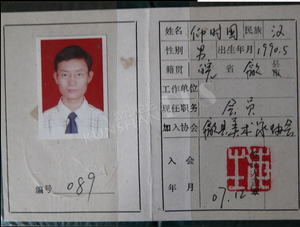 编号 089
姓名 仰时国 民族 汉
性别 男 出生年月 1990.5
籍贯 皖 省 歙 县
工作单位
现任职务 会员
加入协会 歙县美术家协会
入会
年月 07.12